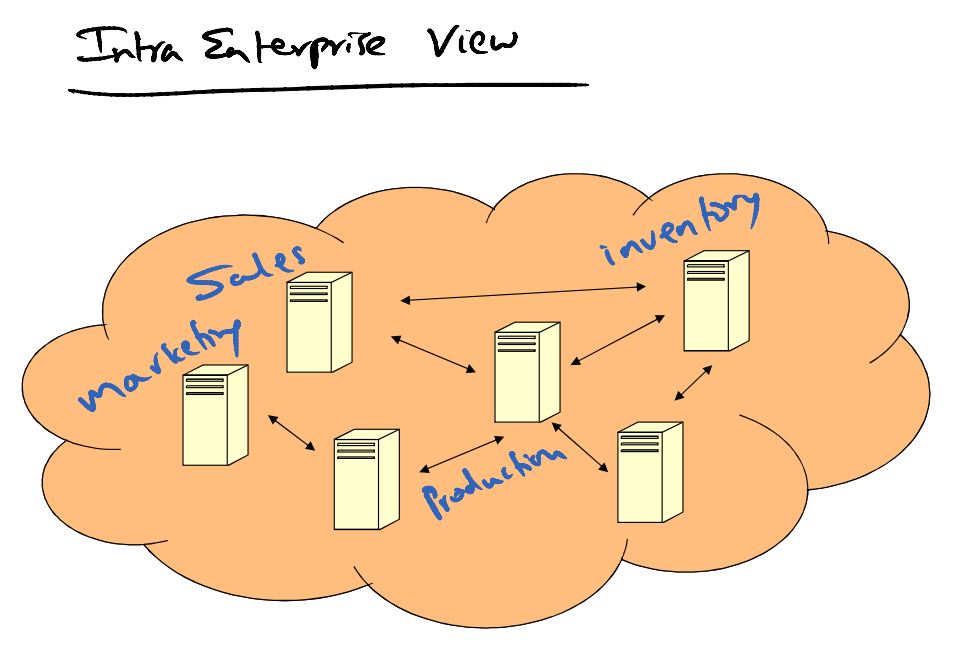 Intra Enterprise View
inventory
Sales
marketing
Production